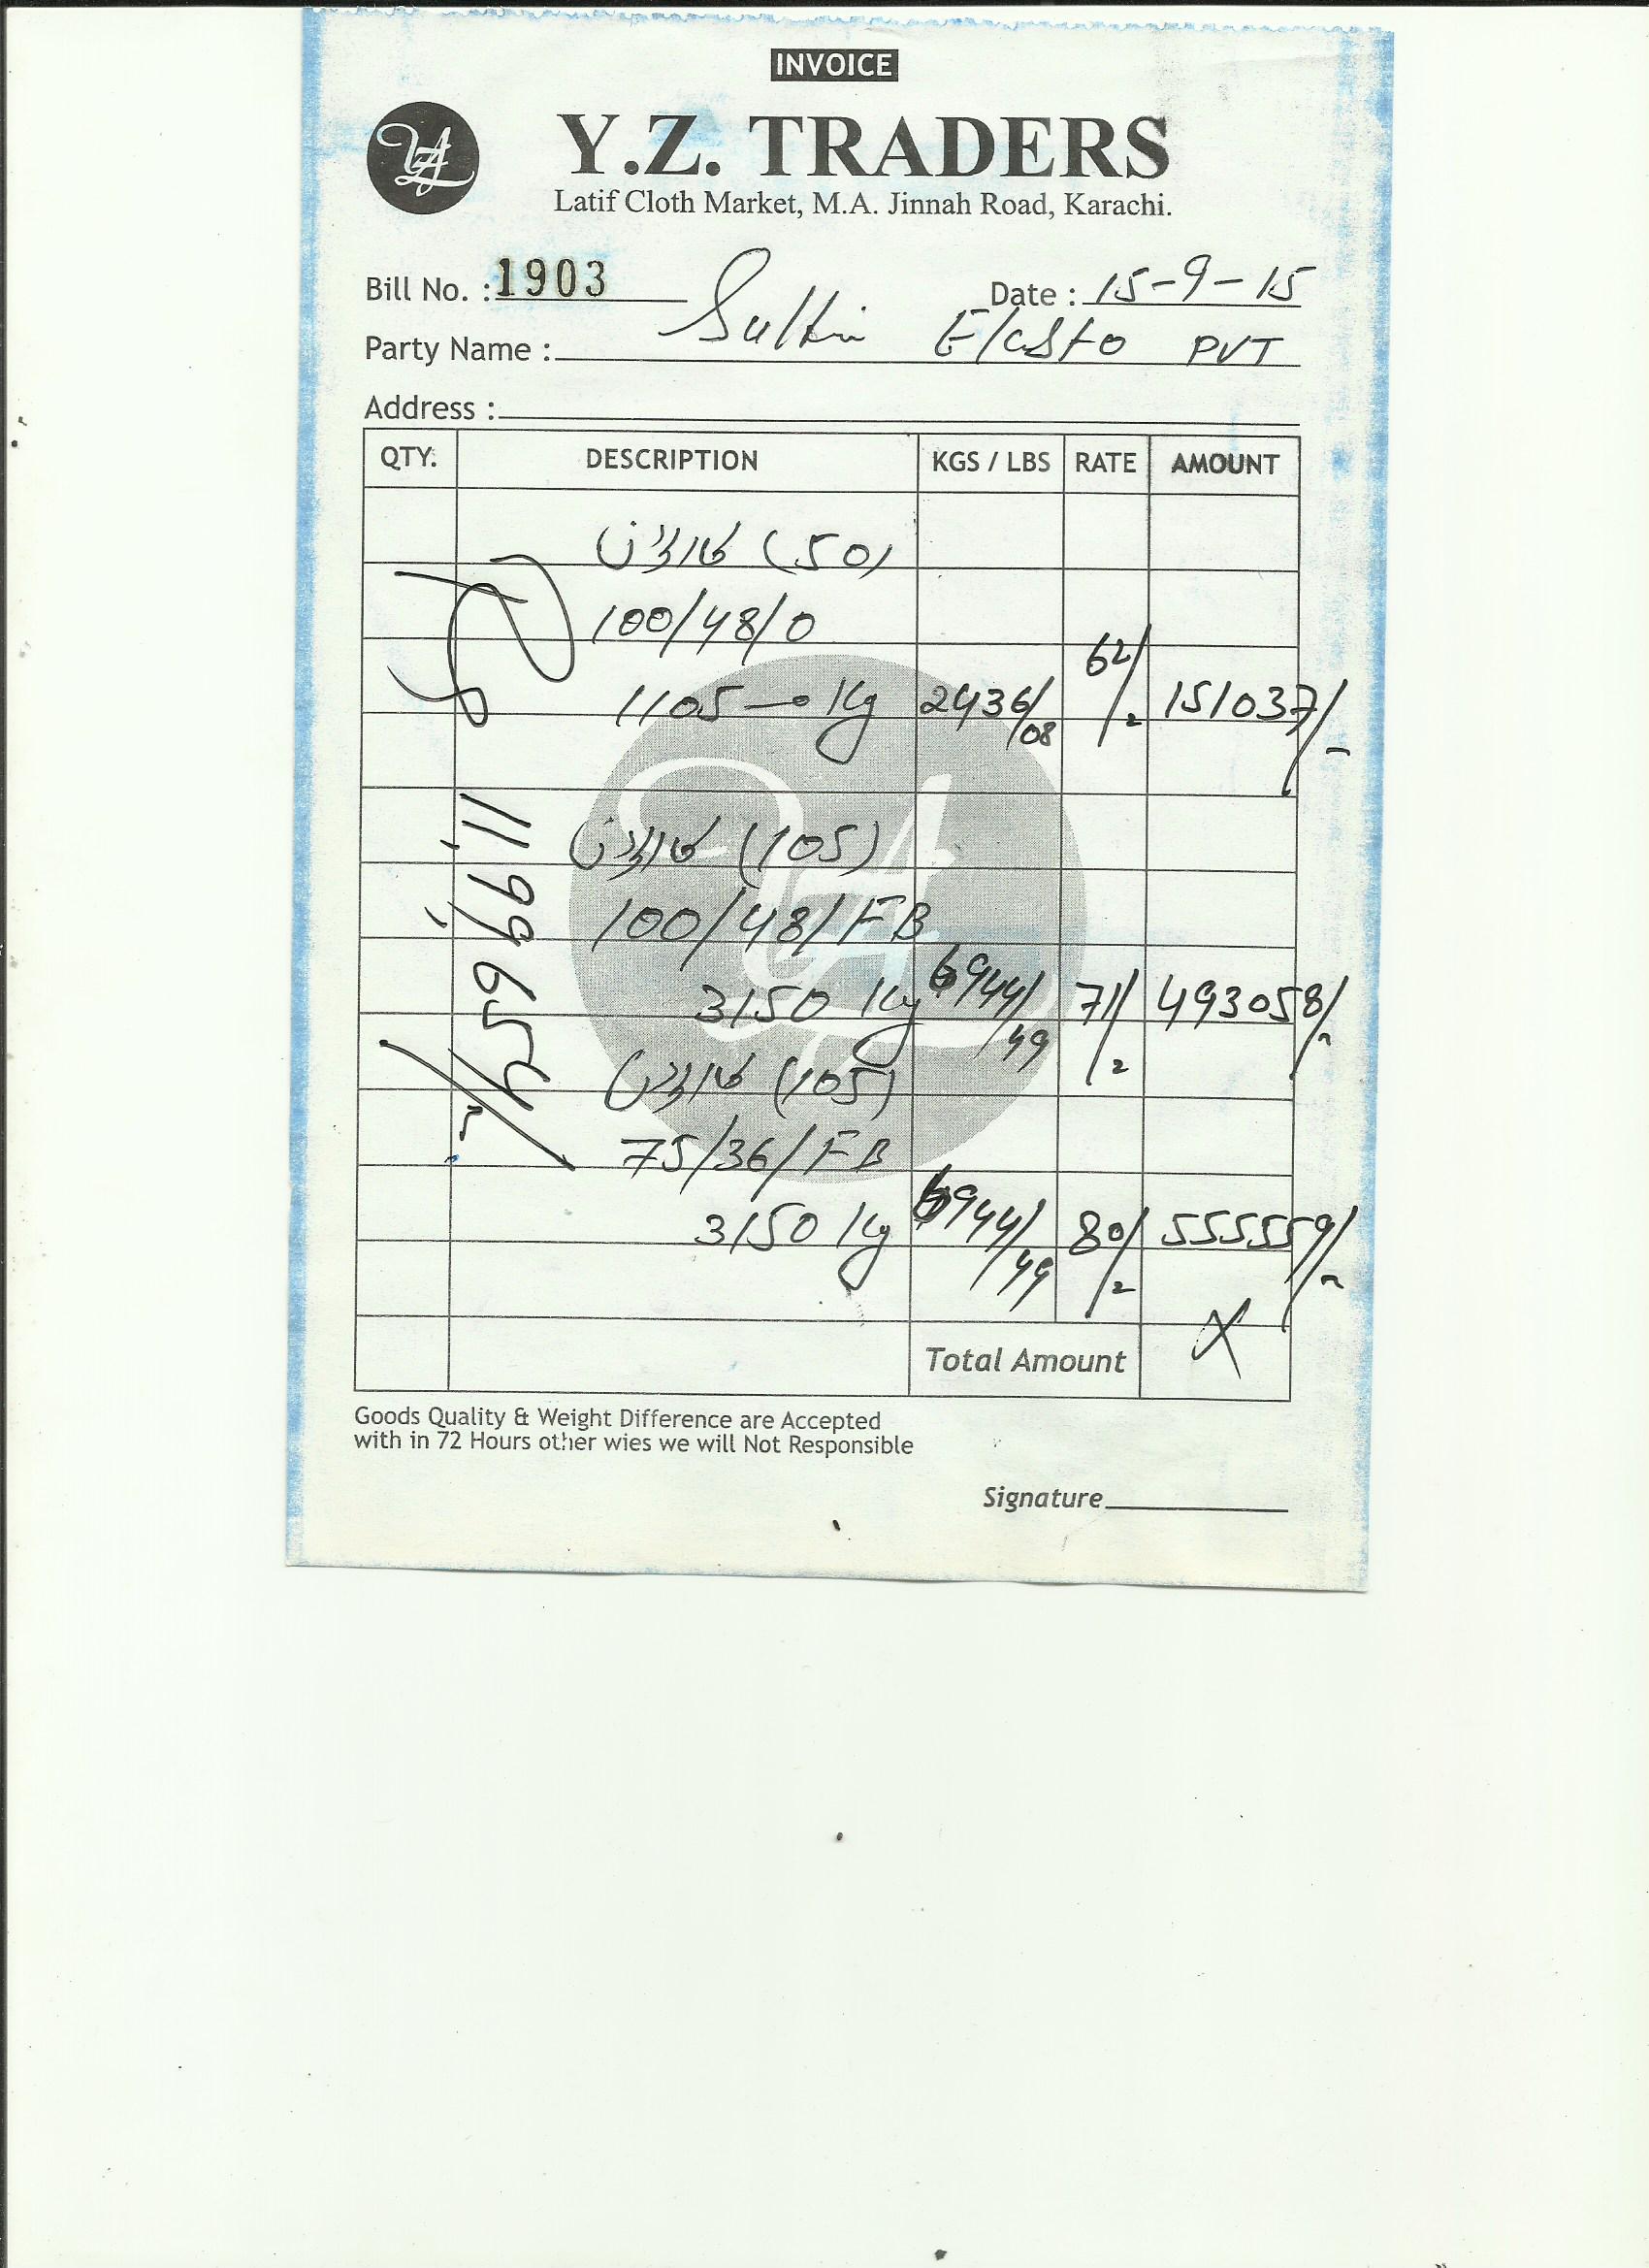 INVOICE
Y.Z. TRADERS
Latif Cloth Market, M.A. Jinnah Road, Karachi.
Bill No. : 1903 Date : 15-9-15
Party Name : Elasto PVT
Address :
QTY. DESCRIPTION KGS / LBS RATE AMOUNT
(50)
100/48/0
1105 Kg 2436/08 62/ 151037/-
(105)
100/48/FB
3150 Kg 6944/49 71/ 493058/-
(105)
75/36/FB
3150 Kg 6944/49 80/ 555559/-
11,99,654/-
Total Amount X
Goods Quality & Weight Difference are Accepted
with in 72 Hours other wies we will Not Responsible
Signature